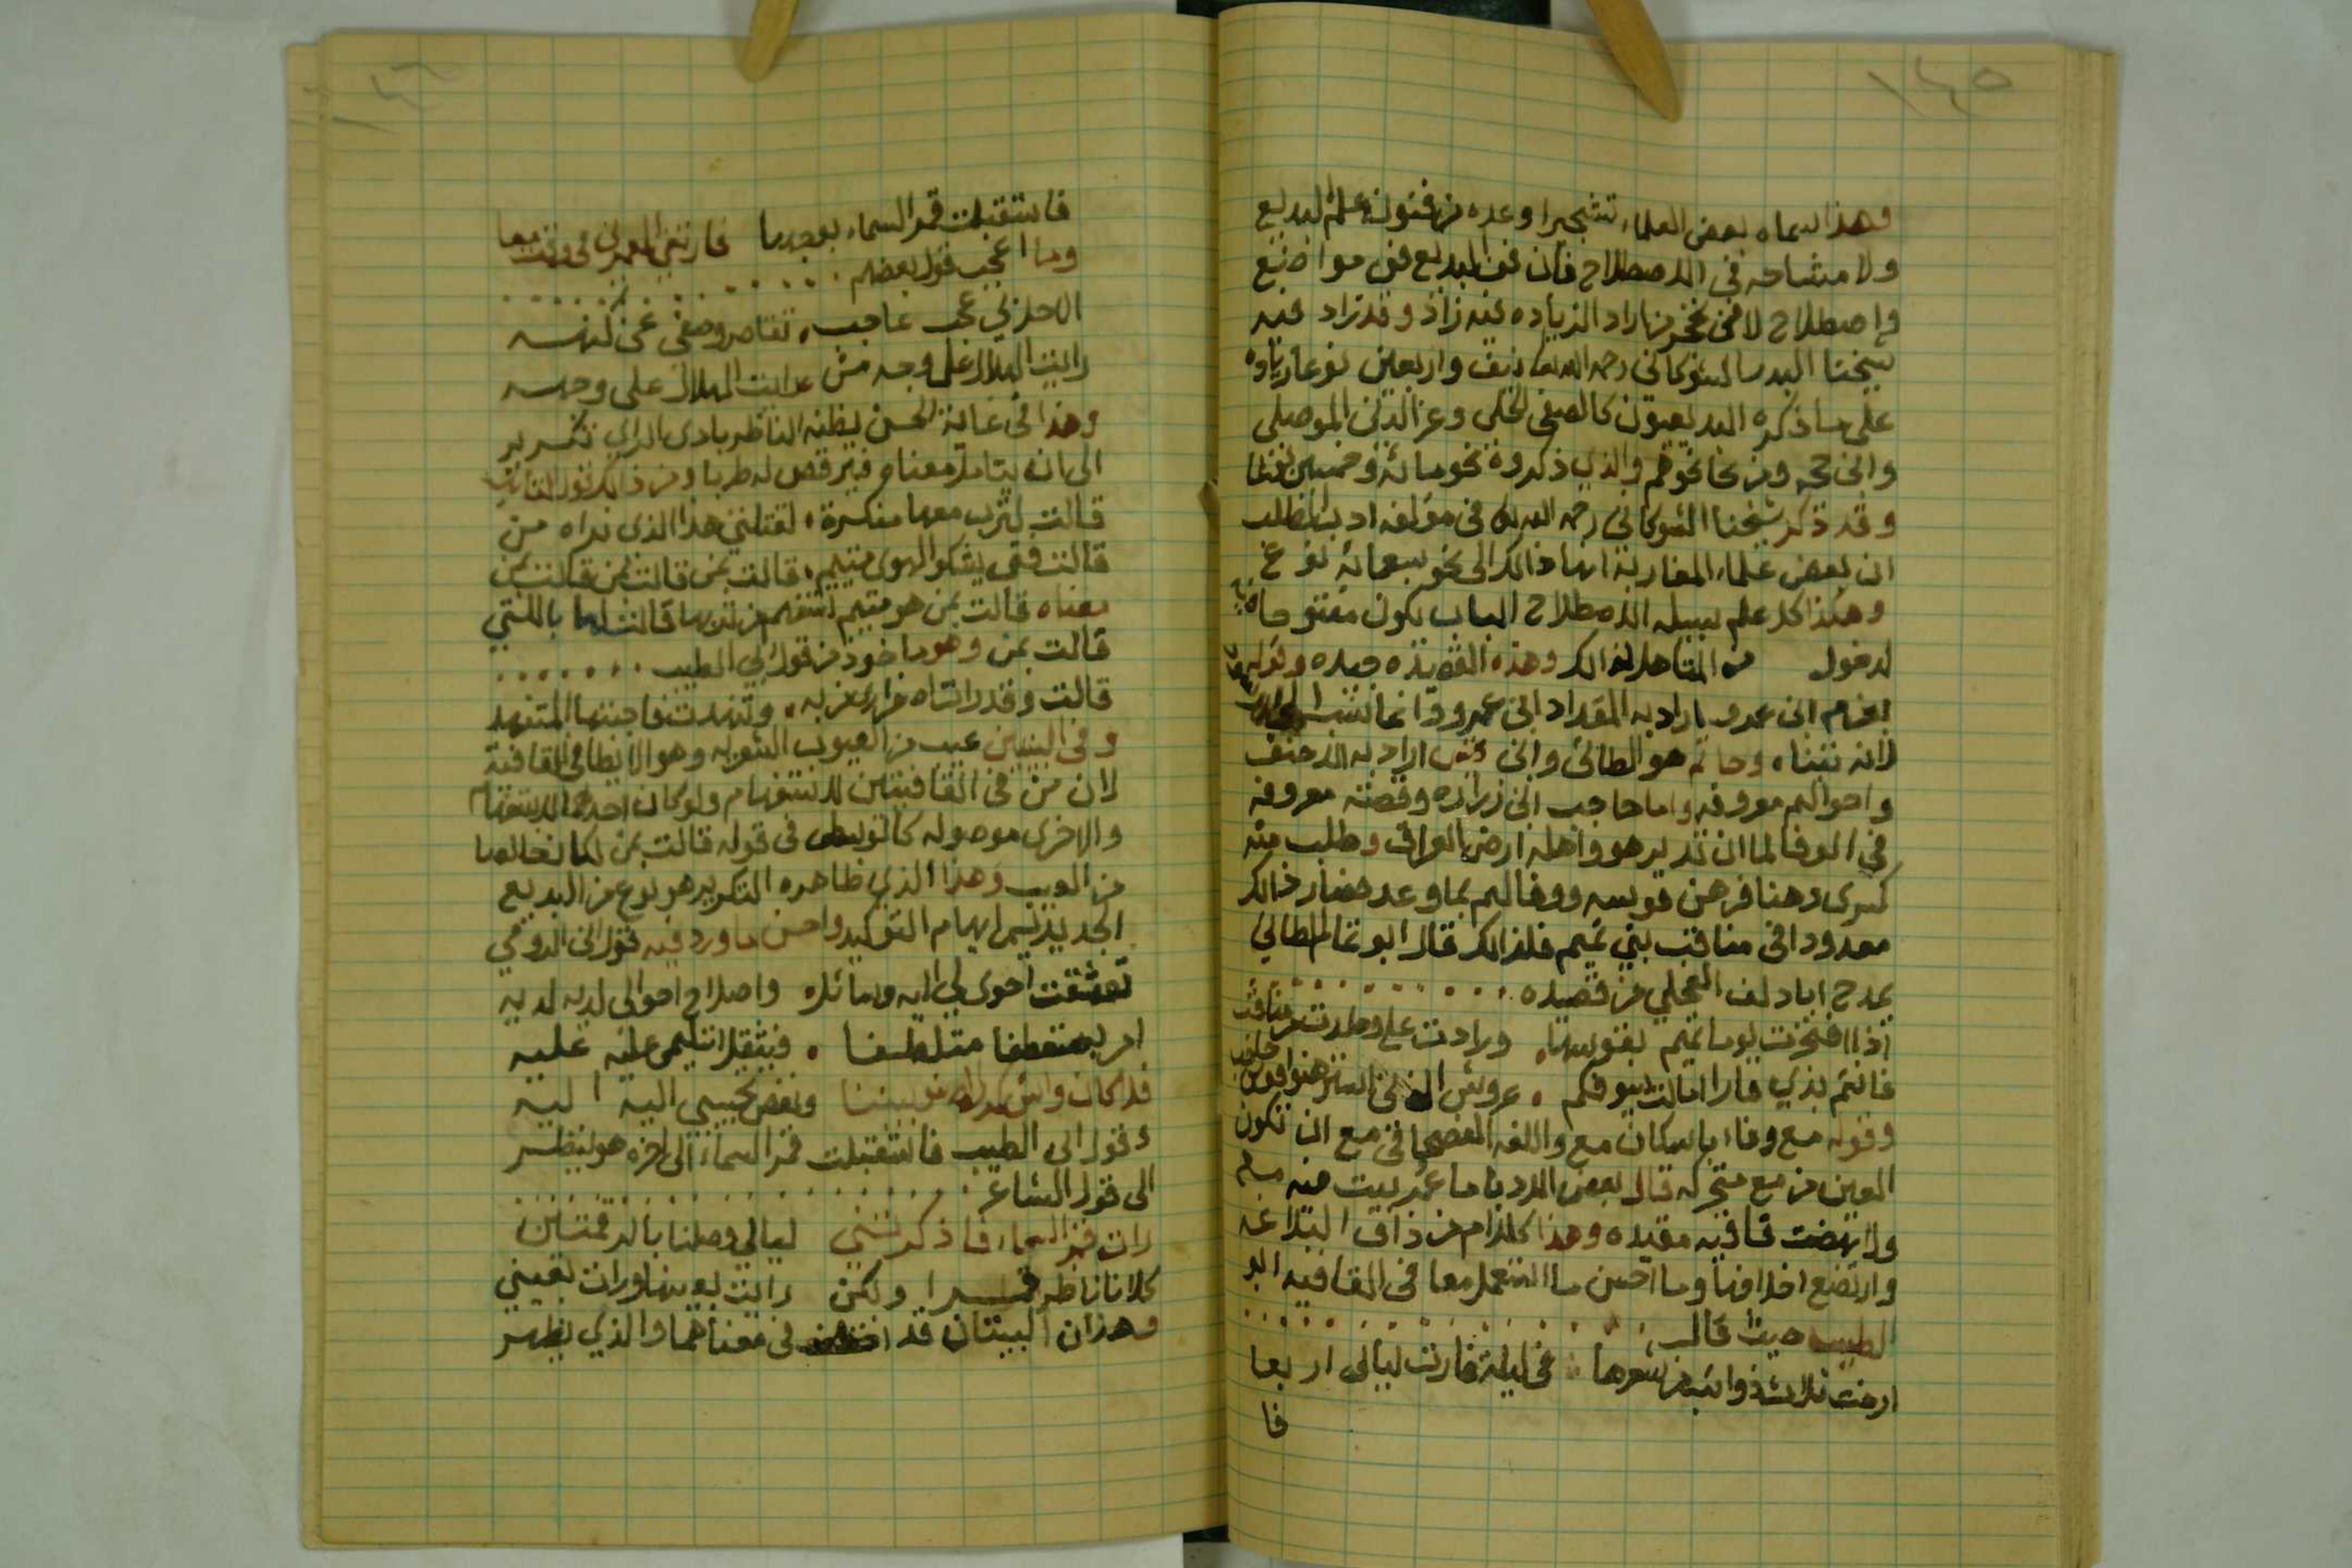 ١٤٥
وهذا سماه بعض العلماء تشجيرا وعده من فنون علم البديع
ولا مشاحه في الاصطلاح فان فن البديع فن مواضع
واصطلاح من اراد الزياده فيه زاد وقد زاد فيه
شيخنا البدر الشوكاني رحمه الله نيف واربعين نوعا زياده
على ما ذكره البديعيون كالصفي الحلي وعز الدين الموصلي
وابن حجه ومن نحا نحوهم والذي ذكروه نحو مائة وخمسين نوعا
وقد ذكر شيخنا الشوكاني رحمه الله في مؤلفه ادب الطلب
ان بعض علماء المغاربة انها ذالك الى نحو سبعمائة نوع
وهكذا كل علم سبيله الاصطلاح الباب يكون مفتوحا
لدخول من المتاهل لذالك وهذه القصيده جيده وقوله
اقدام ابن عمرو اراد به المقداد ابن عمرو وانما
لانه تبناه وحاتم هو الطائي وابن قيس اراد به الاحنف
واحوالهم معروفه واما حاجب ابن زراره وقصته معروفه
في الوفا لما ان هو واهله ارض العراق وطلب منه
كسرى رهنا فرهن قوسه ووفا لهم بما وعد فصار ذالك
معدودا في مناقب بني تميم فلذالك قال ابو تمام الطائي
يمدح ابا دلف العجلي من قصيده
اذا افتخرت يوما تميم بقوسها وزادت على ما وطدت من مناقب
فانتم بذي قار امالت سيوفكم عروش الذين استرهنوا قوس حاجب
وقوله مع وفاء باسكان مع واللغه الفصحا في مع ان تكون
العين من مع متحركه قال بعض الادبا ما عمر بيت فيه مع
ولا نهضت قافيه مقيده وهذا كلام من ذاق البلاغه
وارتضع اخلافها وما احسن ما استعمل معا في القافيه ابو
الطيب حيث قال
ارخت ثلاث ذوائب من شعرها في ليلة فارت ليالي اربعا
فا
فاستقبلت قمر السماء بوجهها فارتني القمرين في وقت معا
وما اعجب قول بعضهم
تقاصر وصفي عن كنهه
رايت الهلال على وجه من رايت الهلال على وجهه
وهذا في غاية الحسن يظنه الناظر بادى الراي تكرير
الى ان يتامل معناه فيرقص له طربا ومن ذالك قول
قالت لترب معها منكرة لوقفتي هذا الذي نراه من
قالت فتى يشكو الهوى متيم قالت بمن قالت بمن قالت بمن
معناه قالت بمن هو متيم تستفهم من تربها قالت لها بالتي
قالت بمن وهو ماخوذ من قول ابي الطيب
قالت وقد رات اصفراري من به وتنهدت فاجبتها المتنهد
وفي البيتين عيب من العيوب الشعريه وهو الايطا في القافية
لان من في القافيتين للاستفهام ولو كان احدهما للاستفهام
والاخرى موصوله كالتوسطى في قوله قالت بمن لكان خالصا
من العيب وهذا الذي ظاهره التكرير هو نوع من البديع
الجديد يسمى ايهام التوكيد واحسن ما ورد فيه قول ابن الدومي
تعشقت احوى لي اليه وسائل واصلاح احوالي لديه لديه
امر به متعطفا متلطفا فيثقل تسليمي عليه عليه
فلا كان واش كدر الصفو بيننا وبغض تحبيبي اليه اليه
وقول ابي الطيب فاستقبلت قمر السماء الى اخره هو ينظر
الى قول الشاعر
رات قمر السماء فاذكرتني ليالي وصلنا بالرقمتين
كلانا ناظر قمرا ولكن رايت بعينها ورات بعيني
وهذان البيتان قد في معناهما والذي يظهر